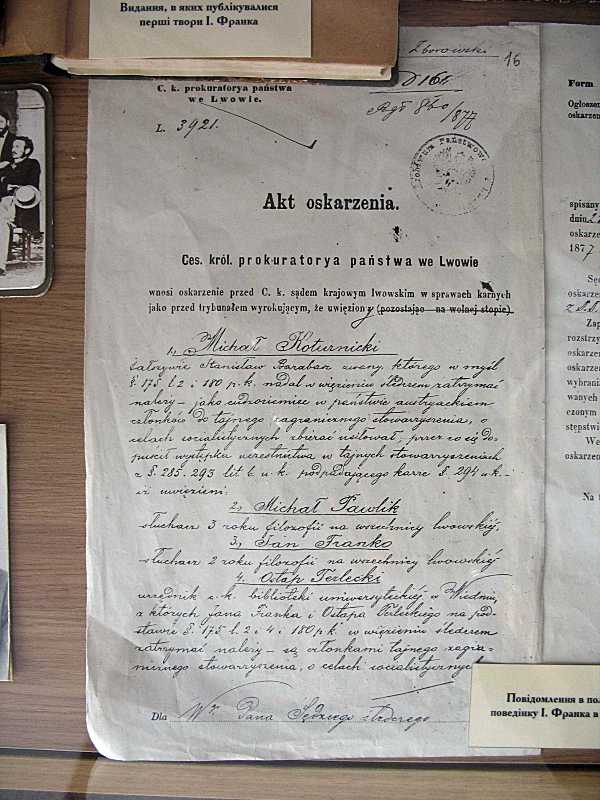 Видання, в яких публікувалися
перші твори І. Франка
Zborowski
16
C. k. prokuratorya państwa
we Lwowie.
L. 3921.
/877
Akt oskarzenia.
Ces. król. prokuratorya państwa we Lwowie
wnosi oskarzenie przed C. k. sądem krajowym lwowskim w sprawach karnych
jako przed trybunałem wyrokującym, że uwięziony (pozostając na wolnej stopie)
1, Michał Koturnicki
fałszywie Stanisław Barabasz zwany, którego w myśl
§. 175 l. 2 i 180 p. k. nadal w więzieniu śledczem zatrzymać
należy – jako cudzoziemiec w państwie austryackiem
członków do tajnego zagranicznego stowarzyszenia, o
celach socialistycznych zbierać usiłował, przez co się do-
puścił występku uczestnictwa w tajnych stowarzyszeniach
z §. 285. 293 lit b. u. k. podpadającego karze §. 294 u. k. –
iż uwięzieni:
2, Michał Pawlik
słuchacz 3 roku filozofii na wszechnicy lwowskiéj,
3, Jan Franko
słuchacz 2 roku filozofii na wszechnicy lwowskiéj
4. Ostap Terlecki
urzędnik c. k. biblioteki uniwersyteckiéj w Wiedniu,
z których Jana Franka i Ostapa Terleckiego na pod-
stawie §. 175 l. 2 i 4 i 180 p. k. w więzieniu śledczem
zatrzymać należy – są członkami tajnego zagra-
nicznego stowarzyszenia, o celach socialistycznych
Dla Wr. Pana Sędziego śledczego
Form
Ogłoszen
oskarzen
spisany
dniu
oskarze
1877
Sę
oskarzen
Zap
rozstrzy
oskarzen
oskarzen
wybrania
wanych
czonym
stępstwi
We
oskarzen
Na
Повідомлення в пол
поведінку І. Франка в